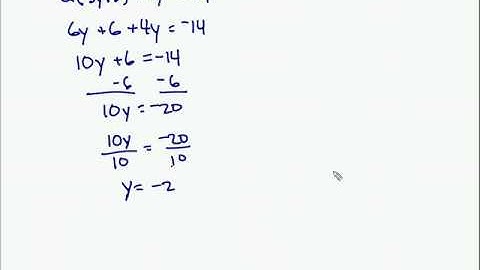 6y + 6 + 4y = -14
10y + 6 = -14
-6 -6
10y = -20
10y/10 = -20/10
y = -2